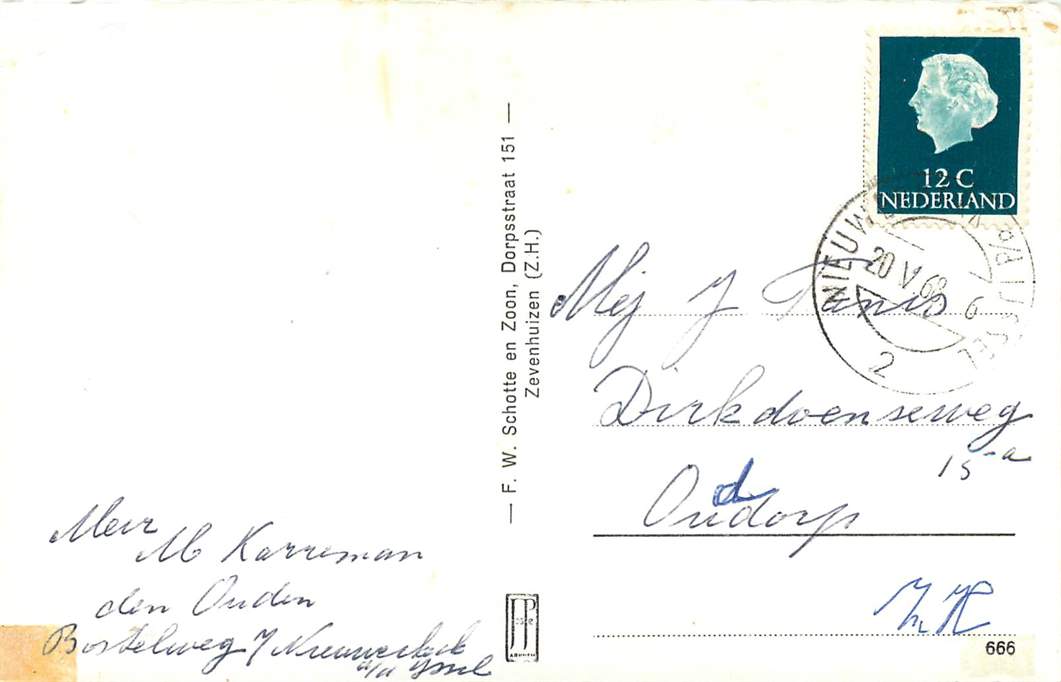 12 C
NEDERLAND
NIEUW A/D IJSSEL
20 V 68 6
2
— F. W. Schotte en Zoon, Dorpsstraat 151 —
Zevenhuizen (Z.H.)
Mej J Tanis
Dirkdoenseweg
15-a
Oudorp
d
ZH
Mevr
M Karreman
den Ouden
Bostelweg 7 Nieuwerkerk
a/d IJssel
JP
666